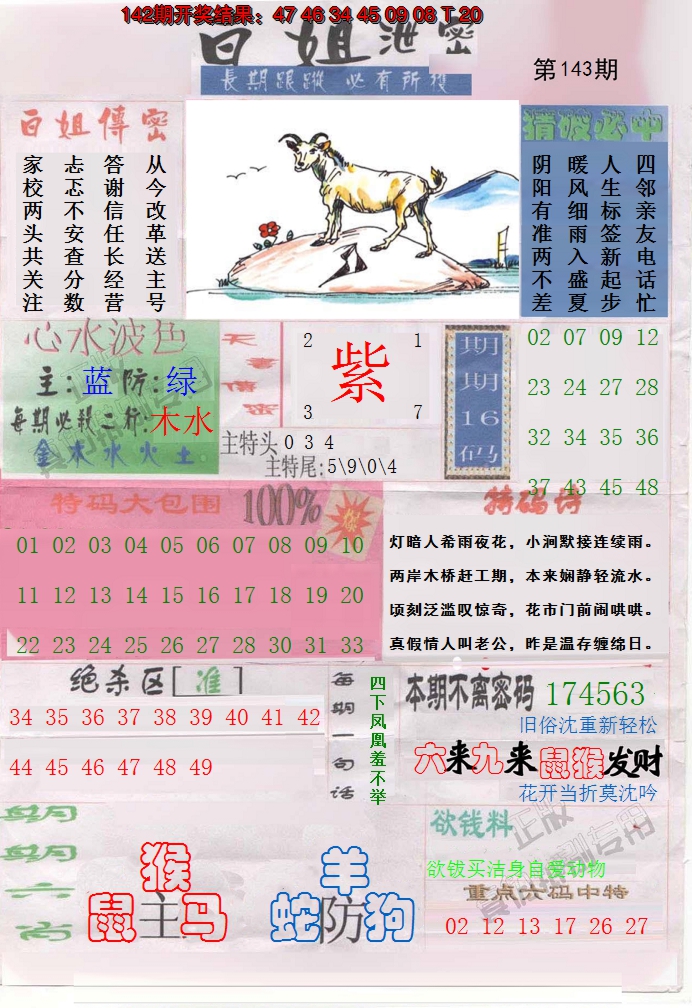 142期开奖结果：47 46 34 45 09 03 T 20
白姐泄密
長期跟蹤 必有所獲
第143期
白姐傳密
从今改革送主号
答谢信任长经营
忐忑不安查分数
家校两头共关注
猜波必中
四邻亲友电话忙
人生标签新起步
暖风细雨入盛夏
阴阳有准两不差
心水波色
主:蓝防:绿
每期必殺二行:木水
金木水火土
天書信密
2 1
紫
3 7
主特头034
主特尾:5\9\0\4
期期16码
02 07 09 12
23 24 27 28
32 34 35 36
37 43 45 48
特码大包围 100%
01 02 03 04 05 06 07 08 09 10
11 12 13 14 15 16 17 18 19 20
22 23 24 25 26 27 28 30 31 33
特码诗
灯暗人希雨夜花，小涧默接连续雨。
两岸木桥赶工期，本来娴静轻流水。
顷刻泛滥叹惊奇，花市门前闹哄哄。
真假情人叫老公，昨是温存缠绵日。
绝杀区[准]
34 35 36 37 38 39 40 41 42
44 45 46 47 48 49
每期一句话
四下凤凰羞不举
本期不离密码 174563
旧俗沈重新轻松
六来九来鼠猴发财
花开当折莫沈吟
期期六肖
猴
鼠主马
羊
蛇防狗
欲钱料
欲钱买洁身自爱动物
重点六码中特
02 12 13 17 26 27